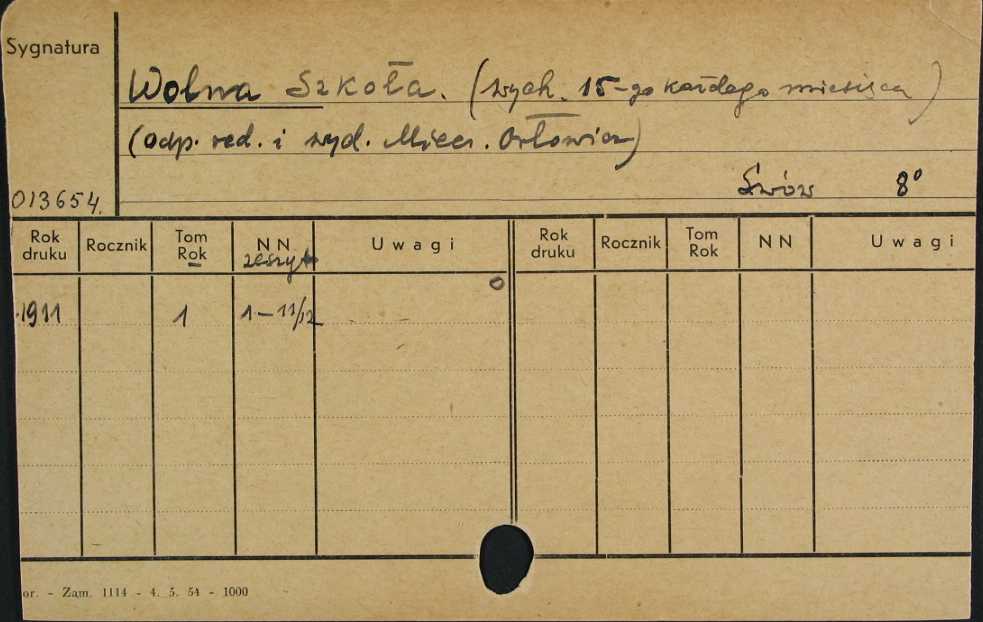 Sygnatura
Wolna Szkoła. (wych. 15-go każdego miesiąca)
(odp. red. i wyd. Miecz. Orłowicz)
Lwów 8°
013654.
Rok druku Rocznik Tom Rok NN zeszyt Uwagi Rok druku Rocznik Tom Rok NN Uwagi
1911 1 1-11/12
or. - Zam. 1114 - 4. 5. 54 - 1000